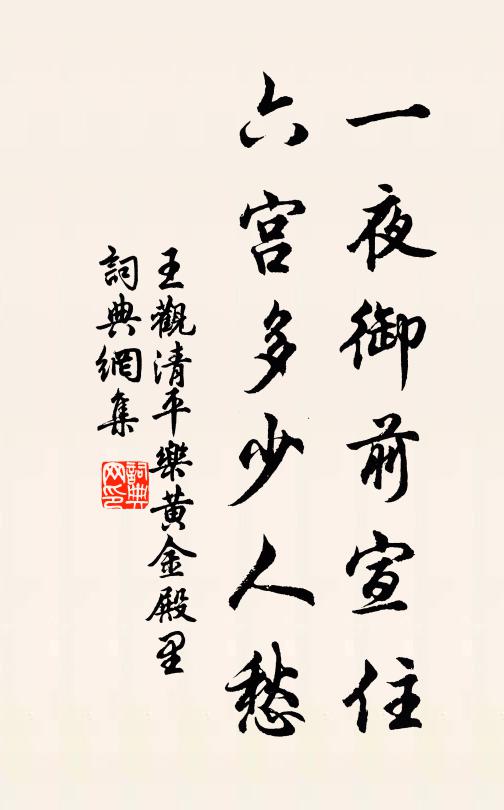 一夜御前宣住
六宮多少人愁
王觀清平樂黃金殿里
詞典網集
詞典网印